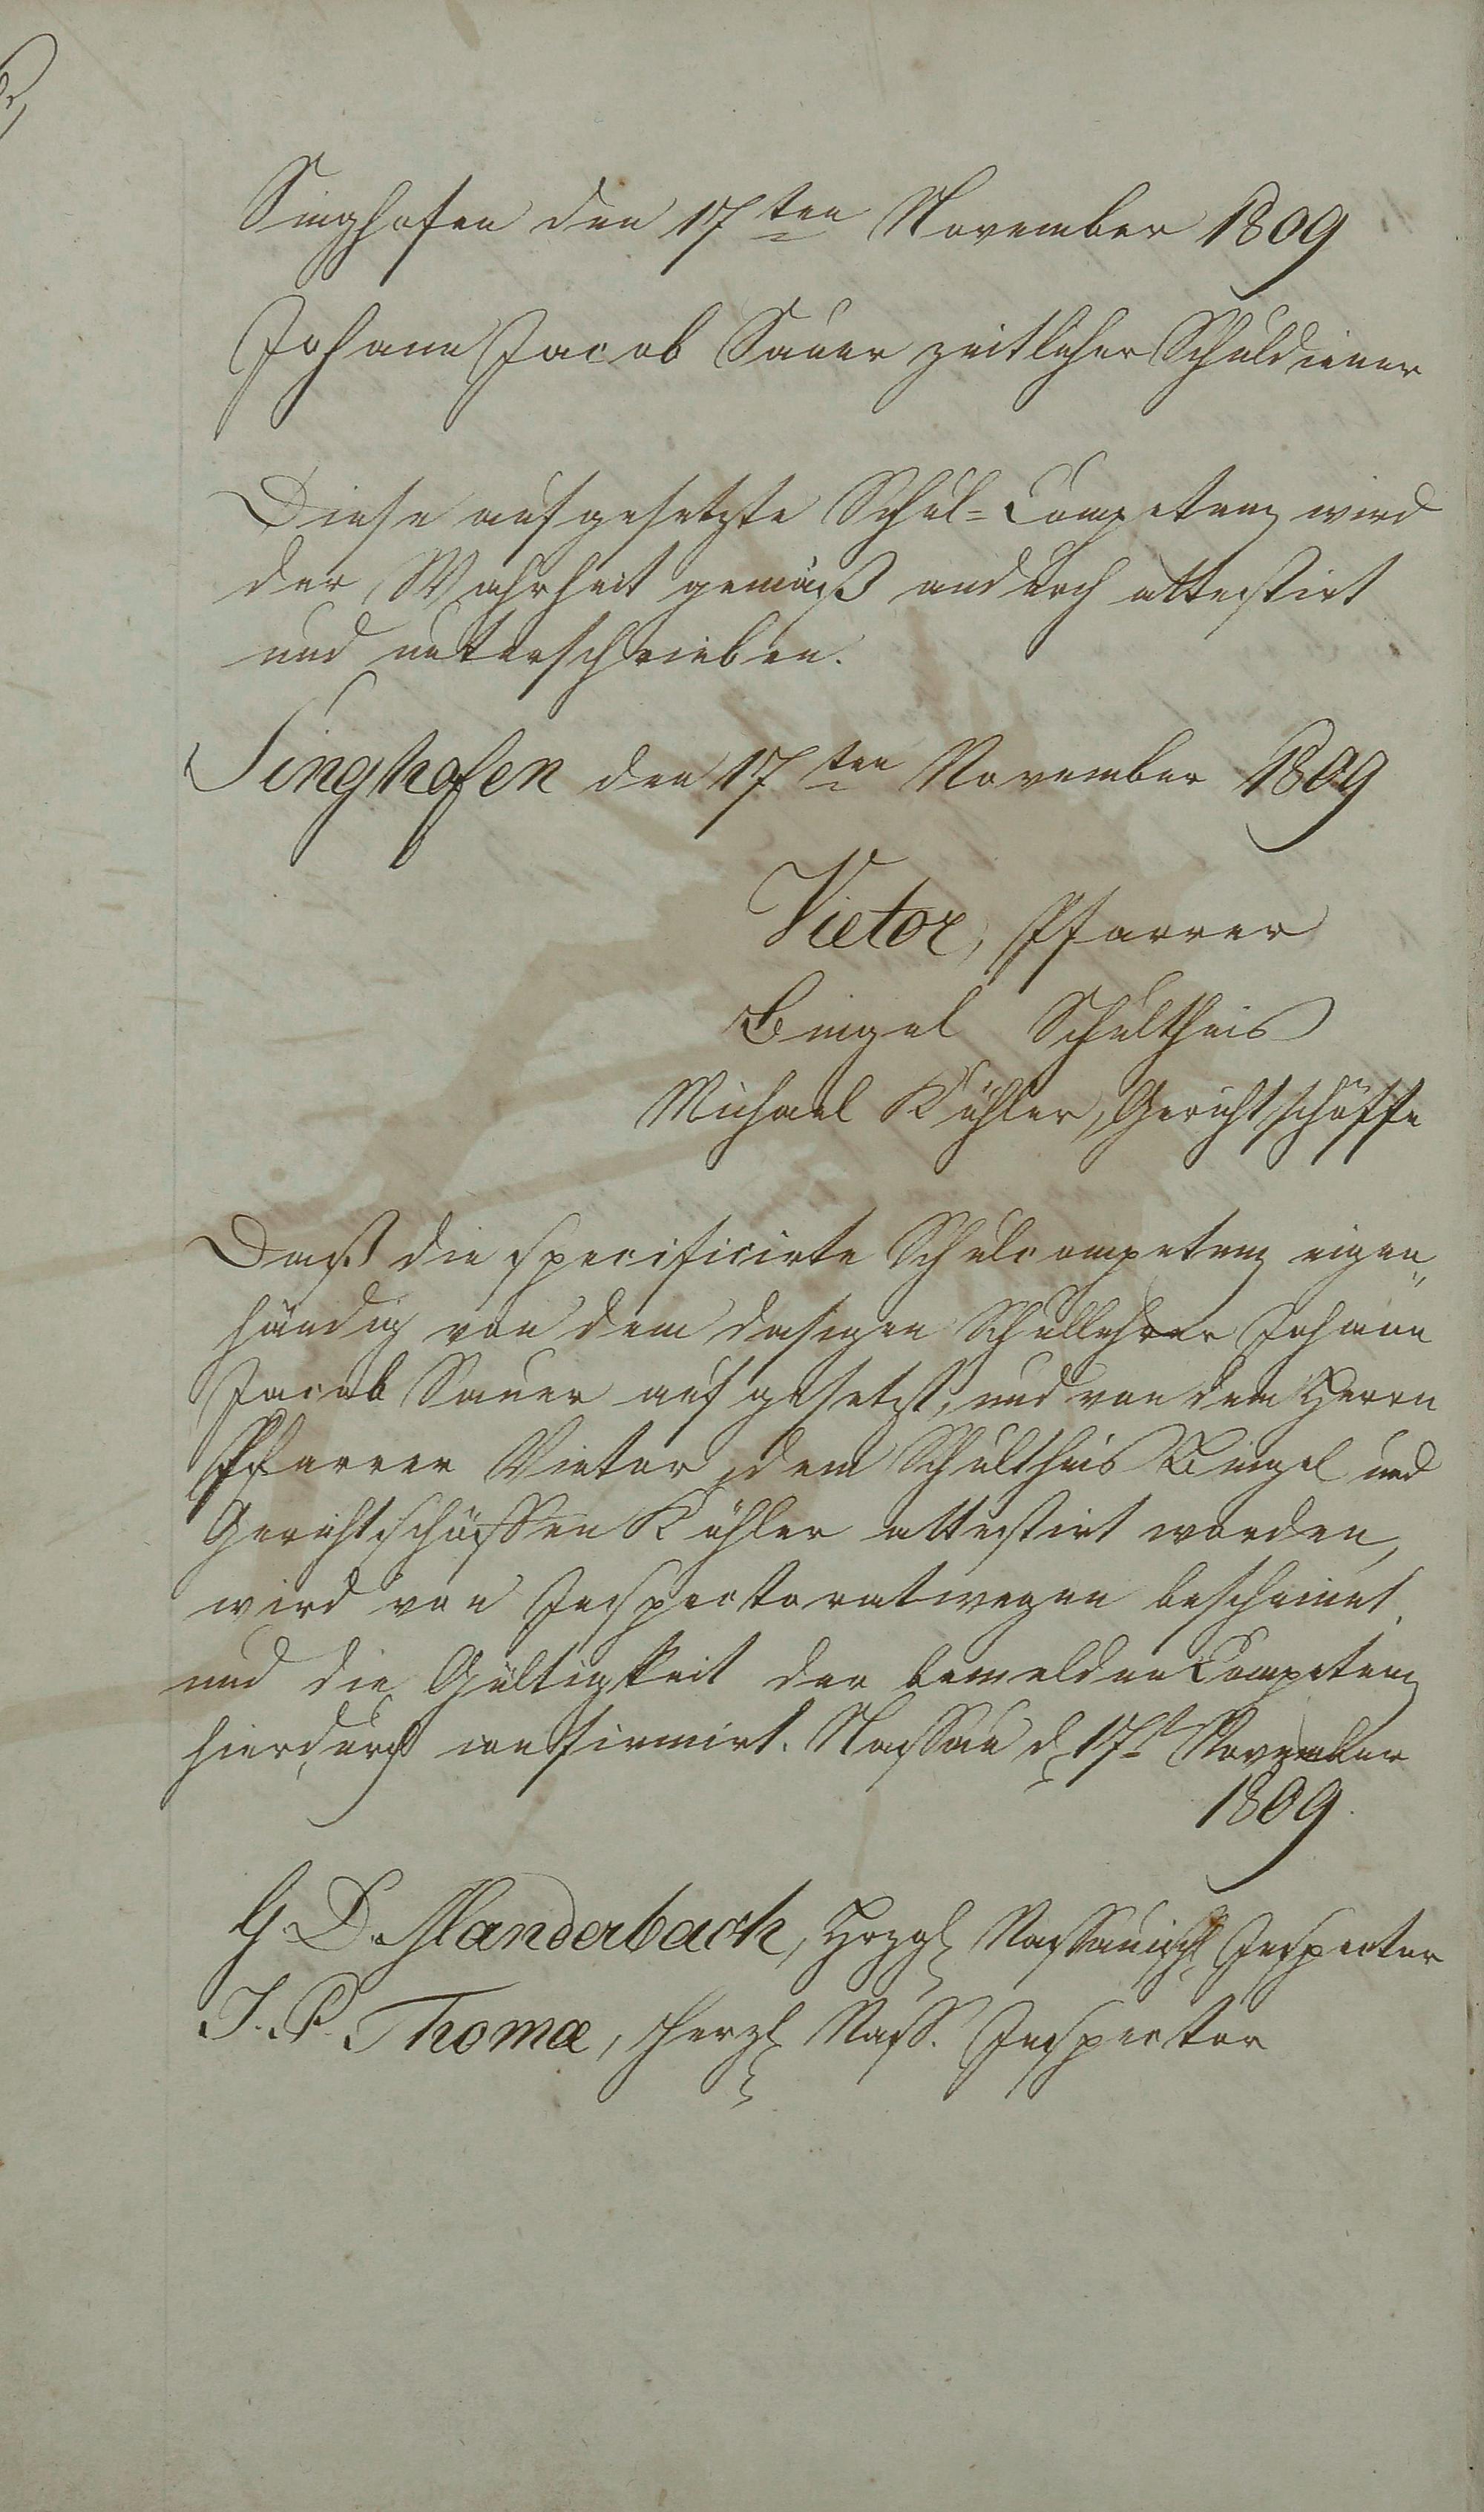 Singhofen den 17ten November 1809
Johann Jacob Sauer zeitlicher Schuldiener
Diese aufgesetzte Schul=Competenz wird
der Wahrheit gemäß andurch attestirt
und unterschrieben.
Singhofen den 17ten November 1809
Vietor, Pfarrer
Bingel Schultheis
Michael Köhler, Gerichtschöffe
Daß die specificirte Schulcompetenz eigen„
händig von dem dasigen Schullehrer Johann
Jacob Sauer aufgesetzt, und von dem Herrn
Pfarrer Vietor, dem Schultheis Bingel und
Gerichtschöffen Köhler attestirt worden,
wird von Inspectoratwegen bescheinet,
und die Gültigkeit der bemelden Competenz
hierdurch confirmirt. Nassau d. 17t November
1809.
G. D. Manderbach, Herzgl. Nassauischl. Inspector
J. P. Thomæ, Herzl. Nass. Inspector